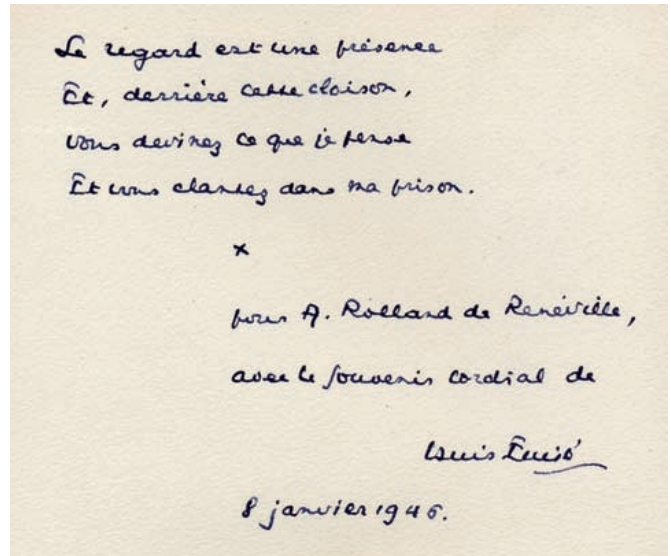 Le regard est une présence
Et, derrière cette cloison,
vous devinez ce que je pense
Et vous chantez dans ma prison.
x
pour A. Rolland de Renéville,
avec le souvenir cordial de
Louis Émié
8 janvier 1946.